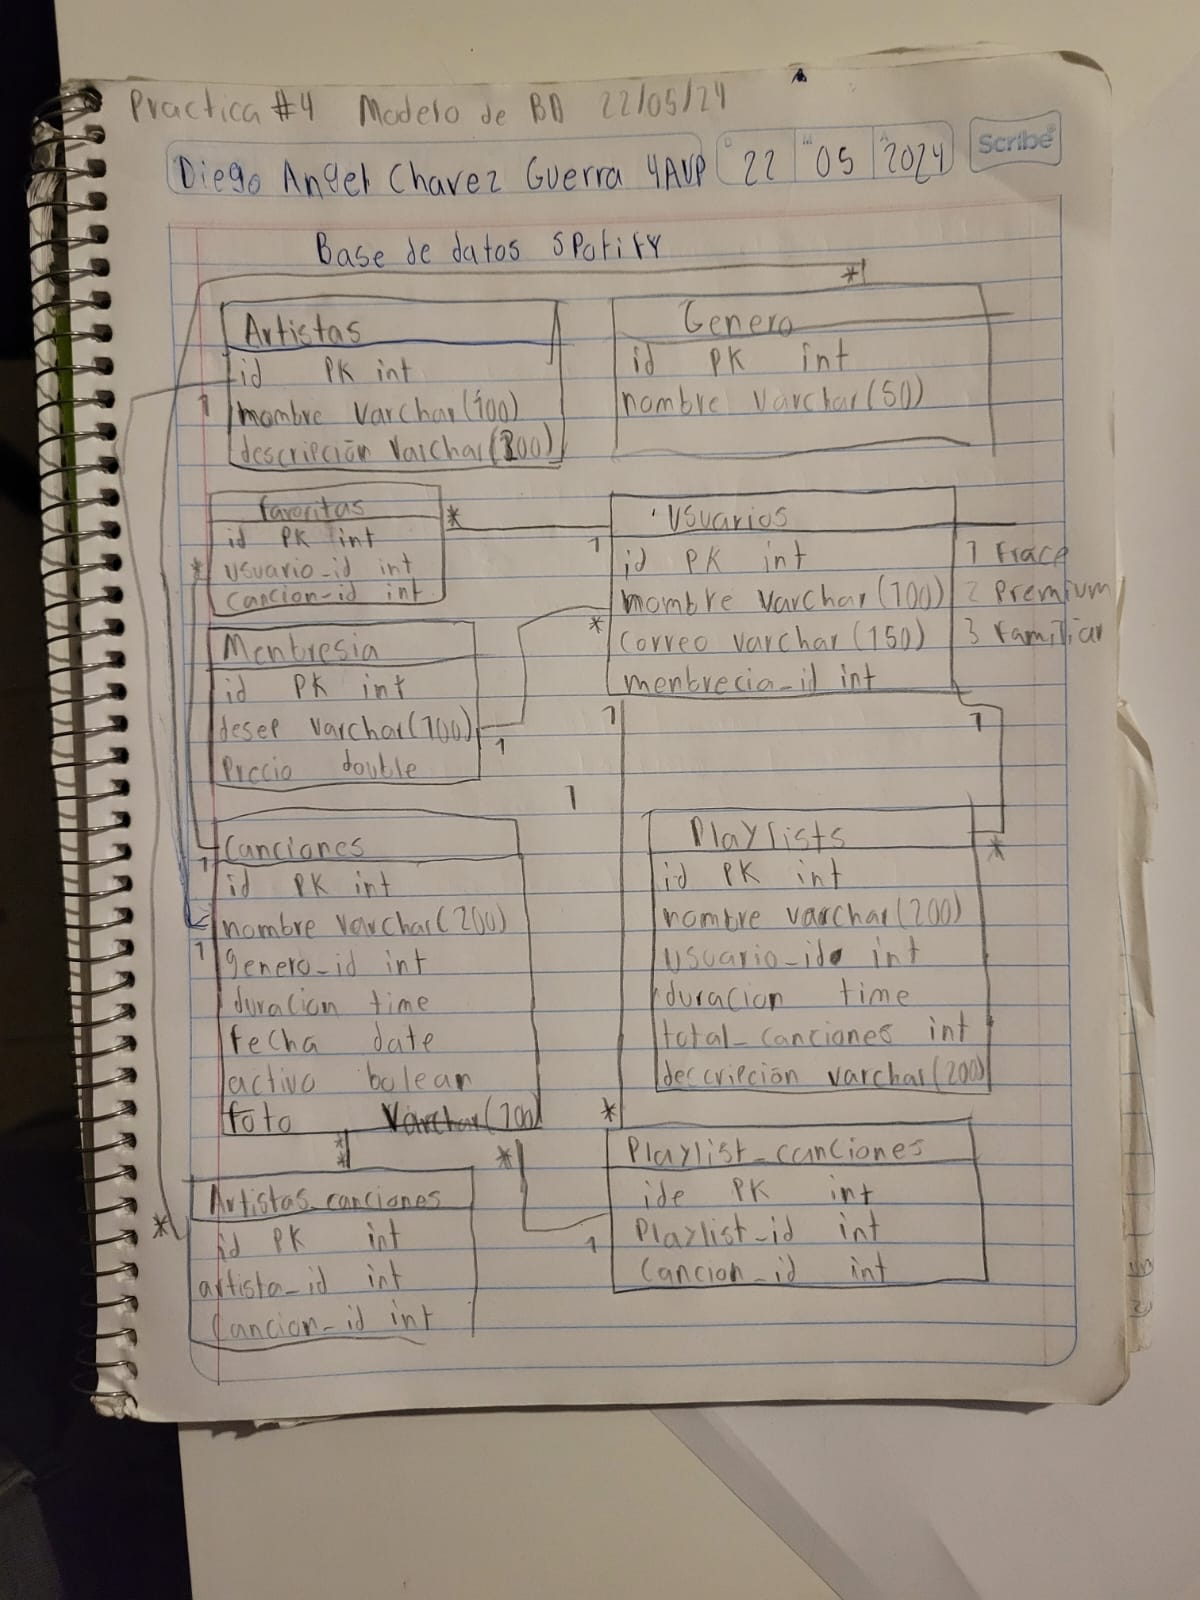 Practica #4 Modelo de BD 22/05/24
Scribe
Diego Angel Chavez Guerra 4AVP 22 05 2024
Base de datos SPotify
*1
Artistas
id PK int
1
nombre Varchar(100)
descripción Varchar(200)
Genero
id PK int
nombre Varchar(50)
favoritas
id PK int
usuario_id int
cancion_id int
*
*
1
Usuarios
id PK int
nombre Varchar(100)
correo varchar(150)
menbrecia_id int
1
2 Premium
3 familiar
*
Menbresia
id PK int
varchar(100)
Precio double
1
1
1
1
Canciones
id PK int
nombre varchar(200)
genero_id int
duracion time
fecha date
activo bolean
foto Varchar(100)
1
1
Playlists
id PK int
nombre varchar(200)
usuario_id int
duracion time
total_canciones int
varchar(200)
*
*
*
*
*
Artistas_canciones
id PK int
artista_id int
Cancion_id int
*
Playlist_canciones
ide PK int
Playlist_id int
Cancion_id int
1